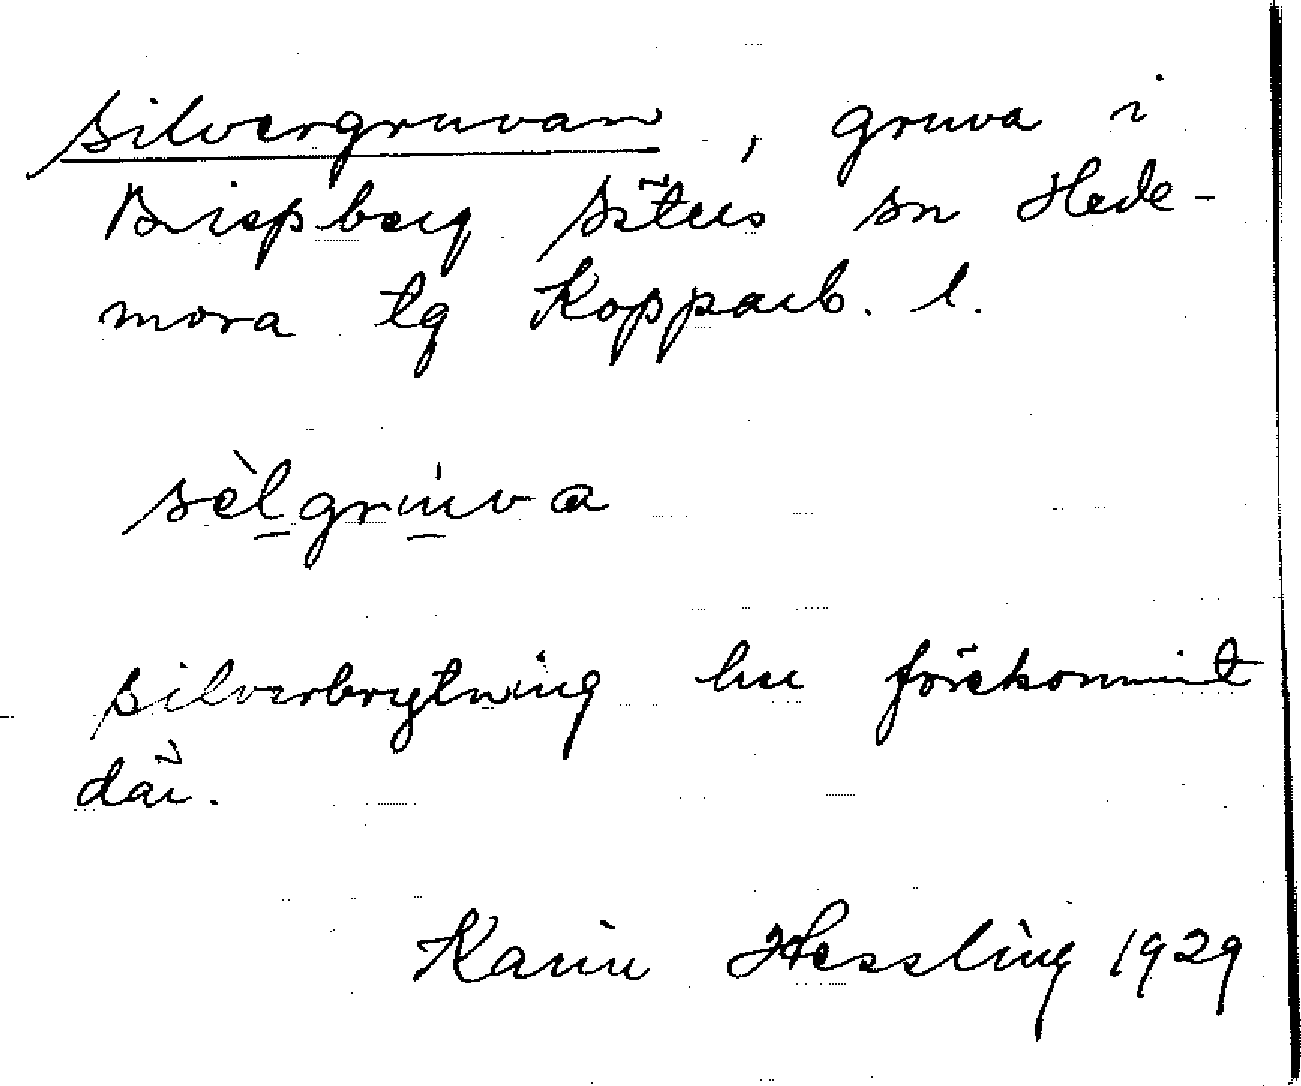 Silvergruvan, gruva i
Bispberg Säters sn Hede-
mora tg Kopparb. l.
sèlgruva
silverbrytning har förekommit
där.
Karin Hessling 1929